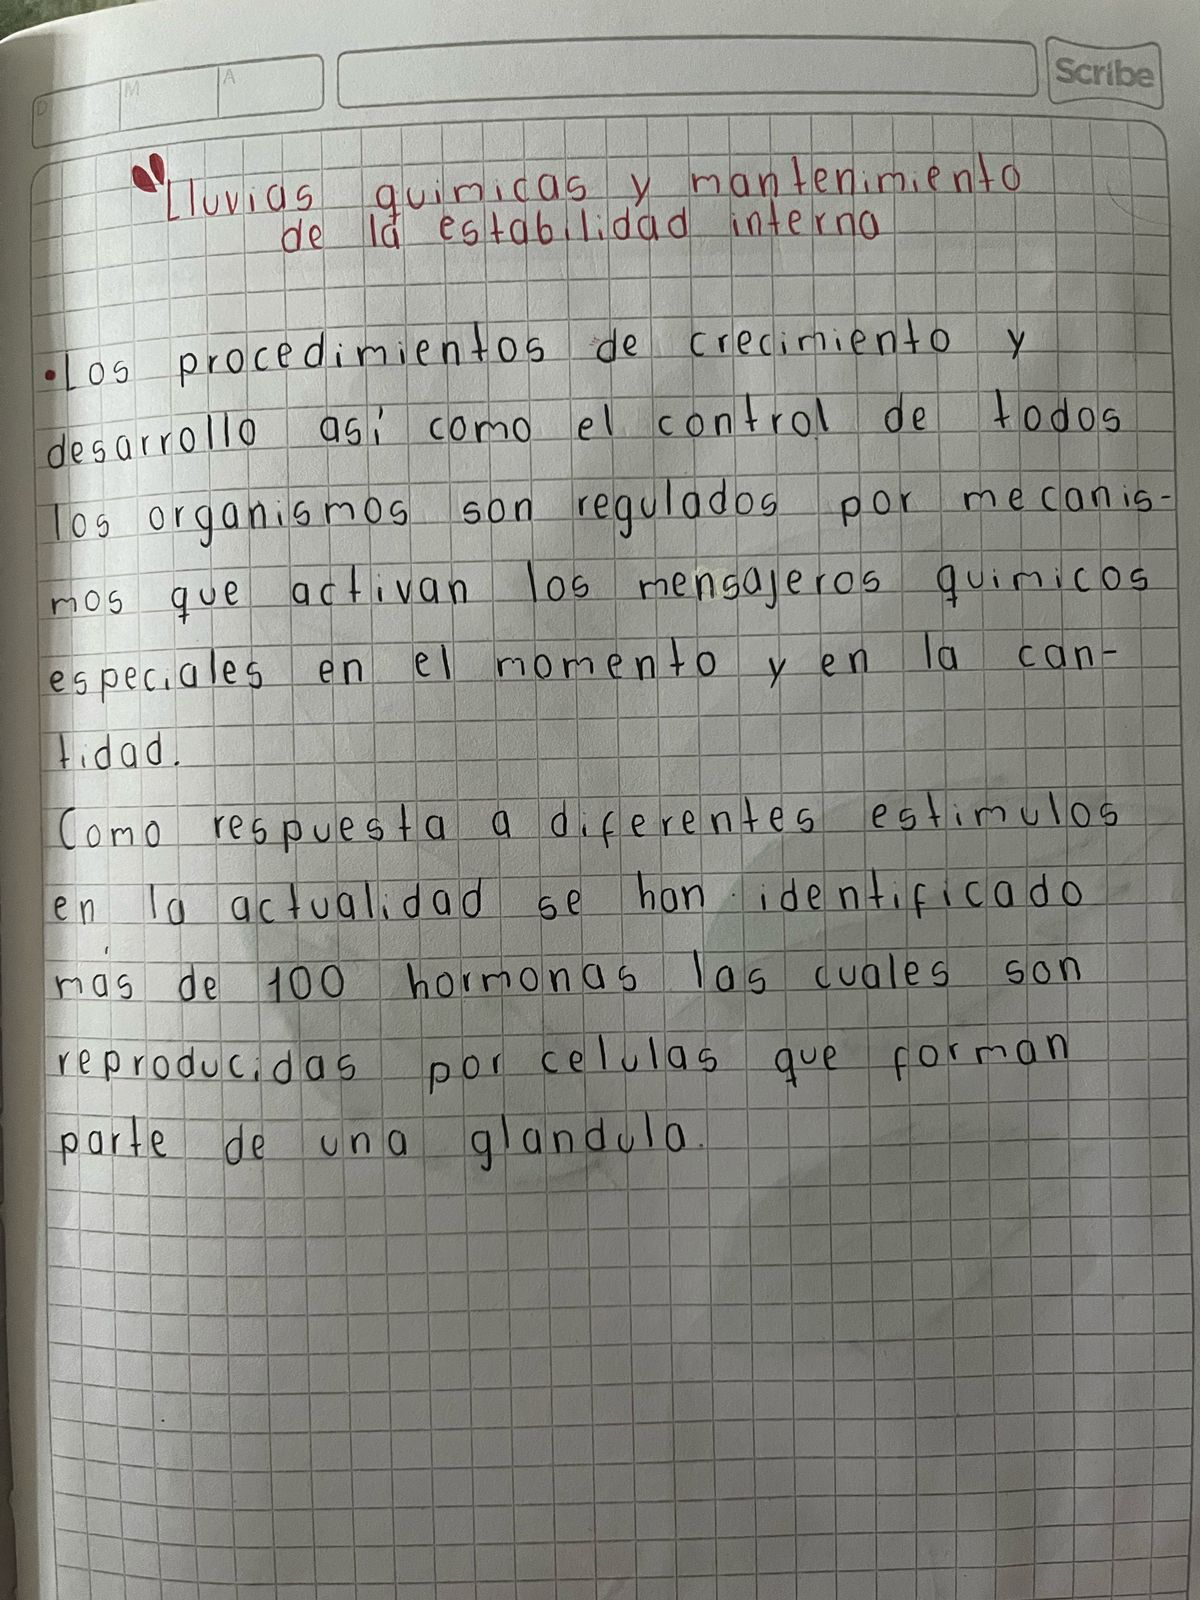 D M A
Scribe
Lluvias quimicas y mantenimiento
de la estabilidad interna
•Los procedimientos de crecimiento y
desarrollo así como el control de todos
los organismos son regulados por mecanis-
mos que activan los mensajeros quimicos
especiales en el momento y en la can-
tidad.
Como respuesta a diferentes estimulos
en la actualidad se han identificado
más de 100 hormonas las cuales son
reproducidas por celulas que forman
parte de una glandula.